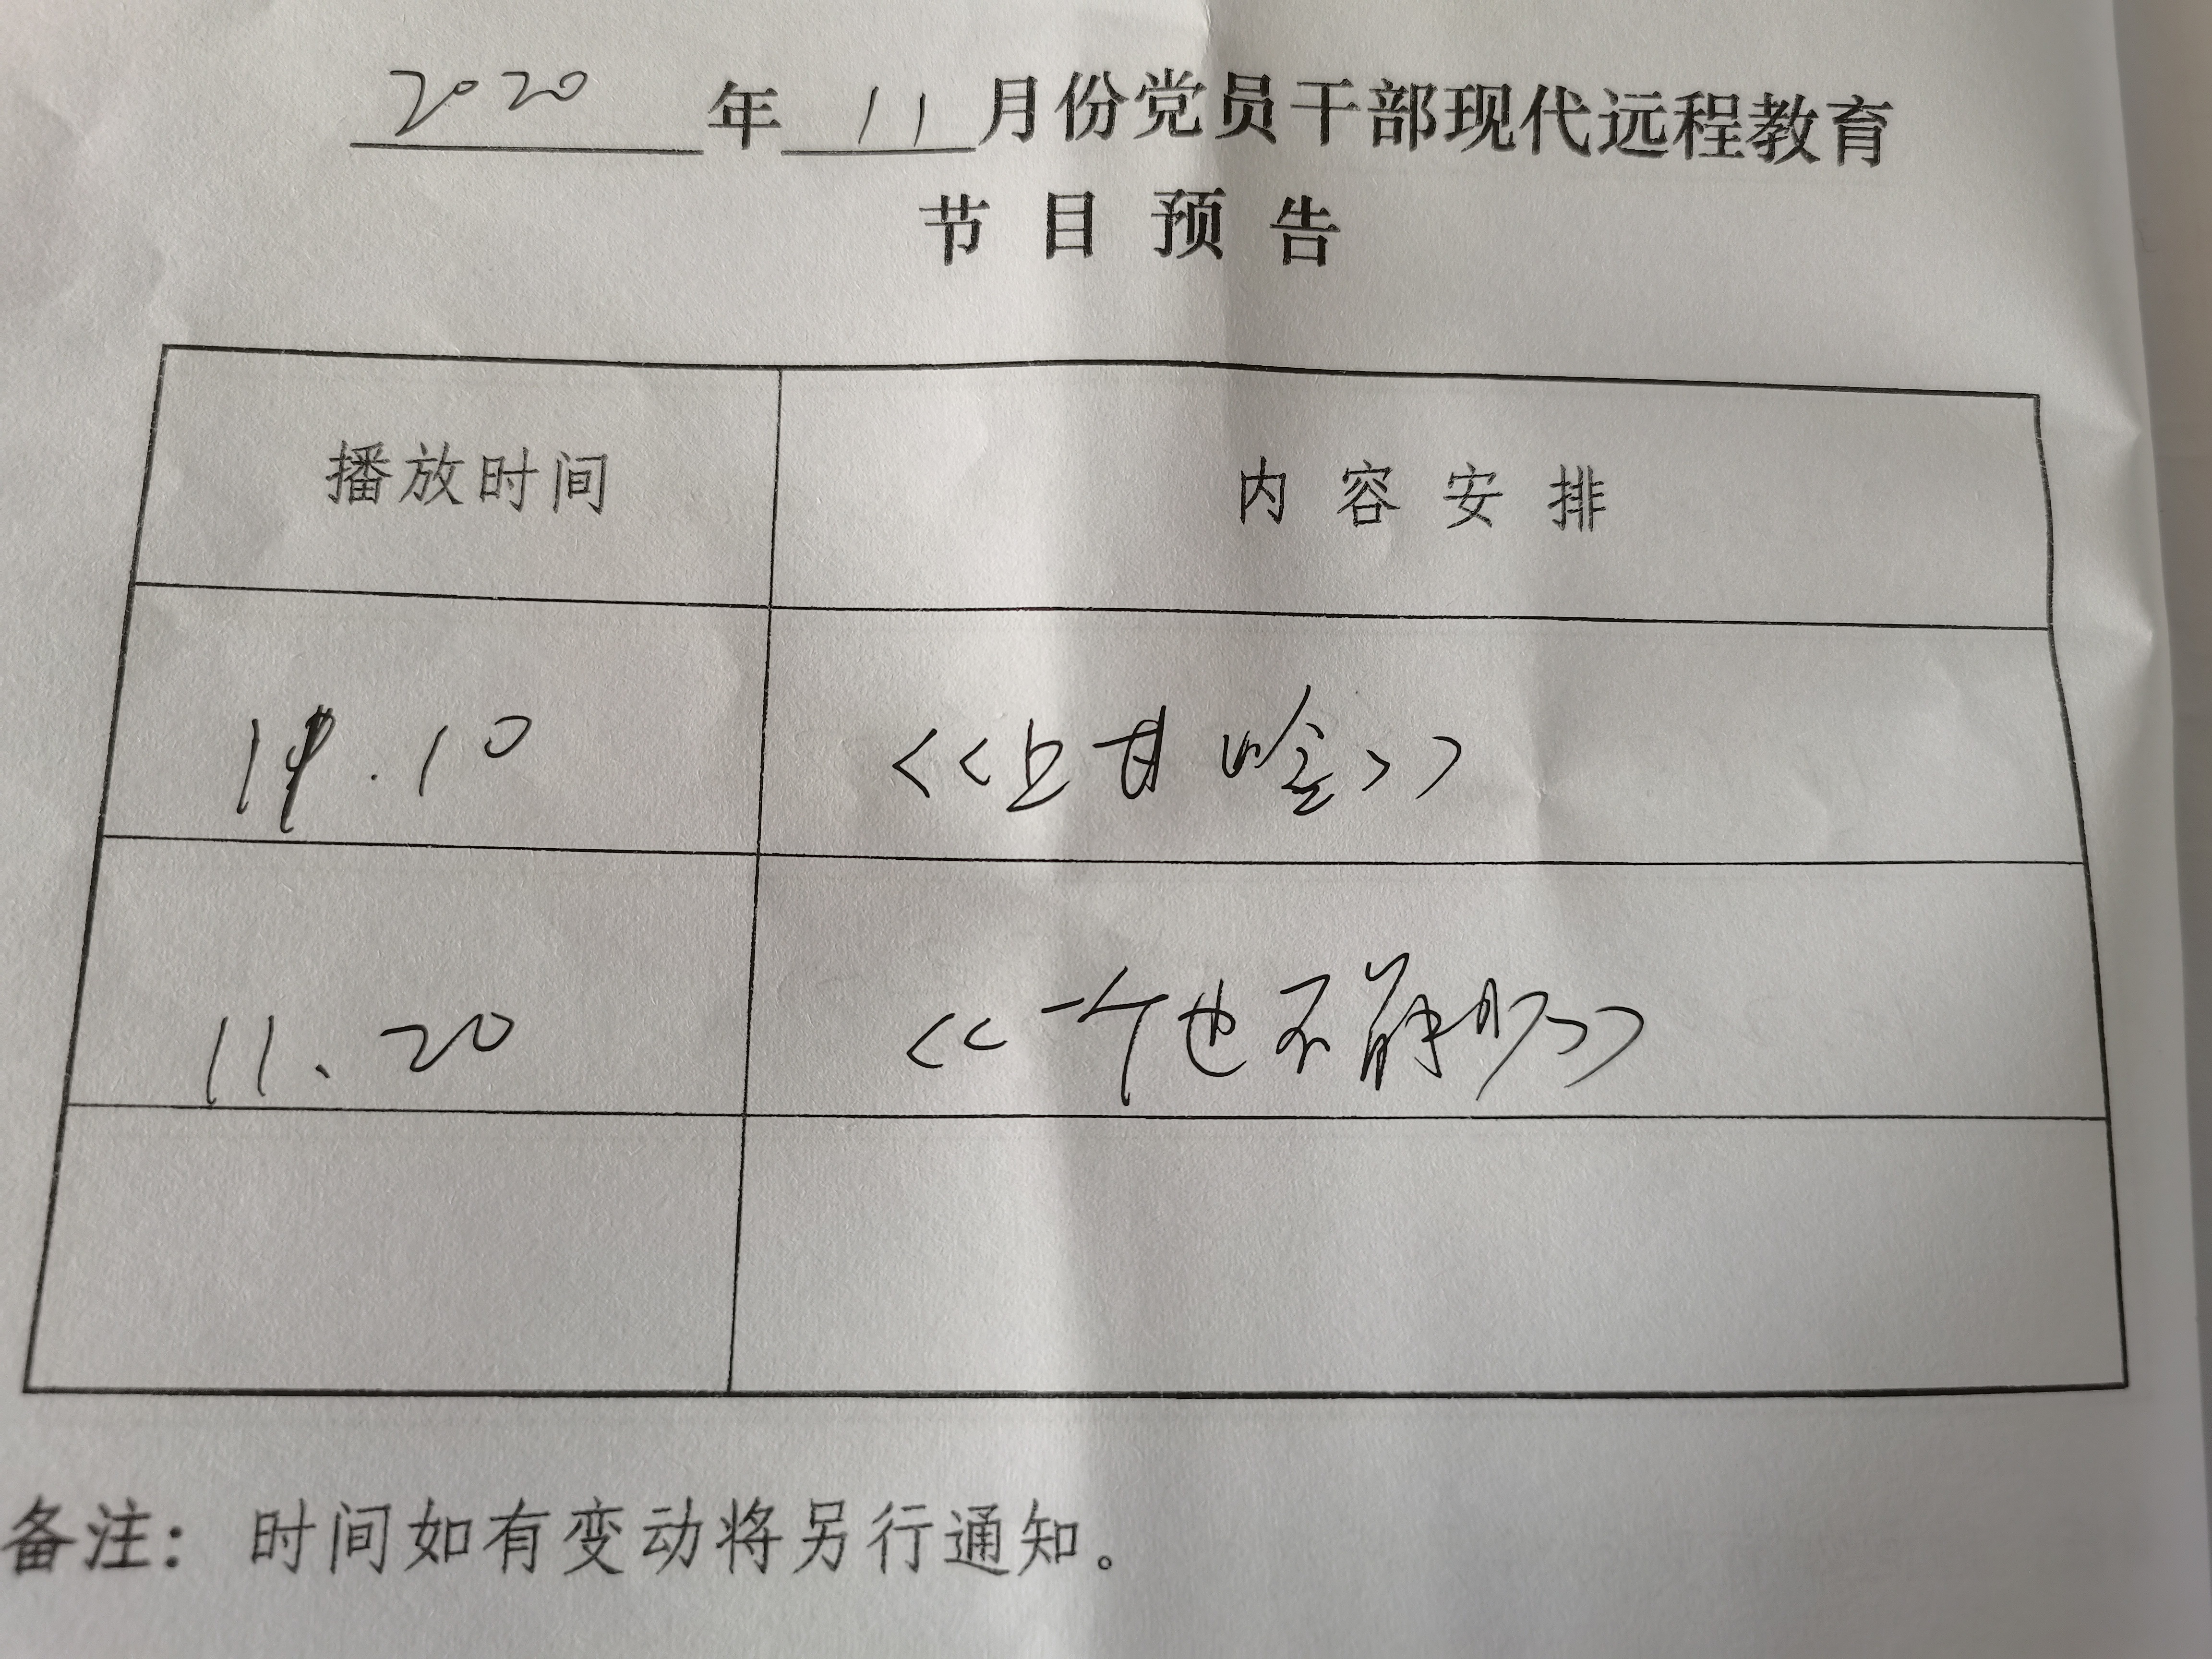 2020 年 11 月份党员干部现代远程教育
节目预告
播放时间 内容安排
11.10 <<上甘岭>>
11、20 <<一个也不能少>>
备注：时间如有变动将另行通知。